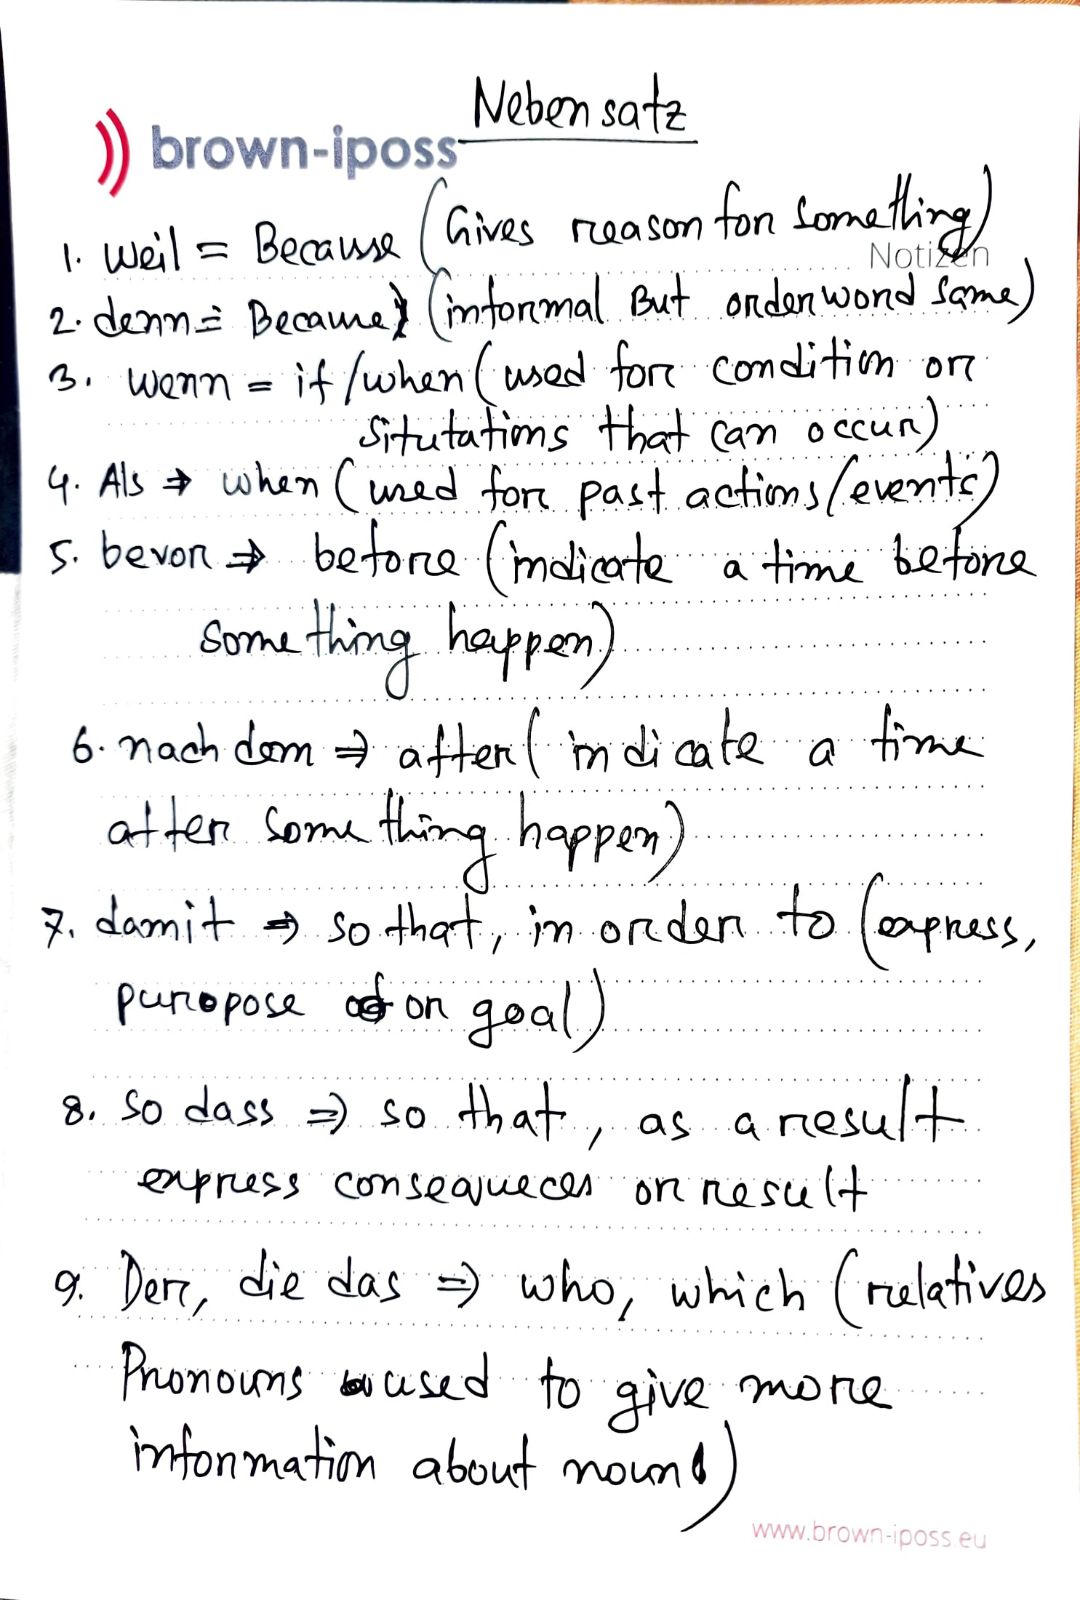 Nebensatz
brown-iposs
1. Weil = Because (Gives reason for something)
Notizen
2. denn = Because (informal But order word same)
3. wenn = if/when (used for condition or
situtations that can occur)
4. Als ⇒ when (used for past actions/events)
5. bevor ⇒ before (indicate a time before
something happen)
6. nachdem ⇒ after (indicate a time
after something happen)
7. damit ⇒ so that, in order to (express,
puropose or goal)
8. so dass ⇒ so that, as a result
express consequeces or result
9. Der, die das ⇒ who, which (relatives
Pronouns used to give more
information about noun)
www.brown-iposs.eu